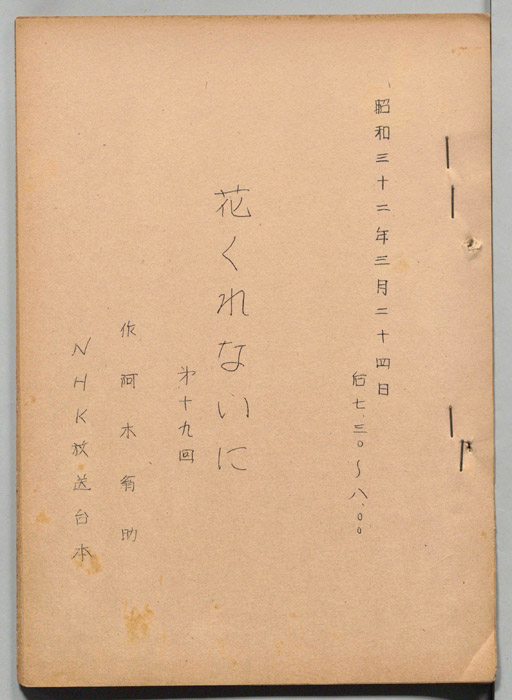 昭和三十二年三月二十四日
后七.三〇〜八.〇〇
花くれないに
第十九回
作 阿木翁助
NHK放送台本